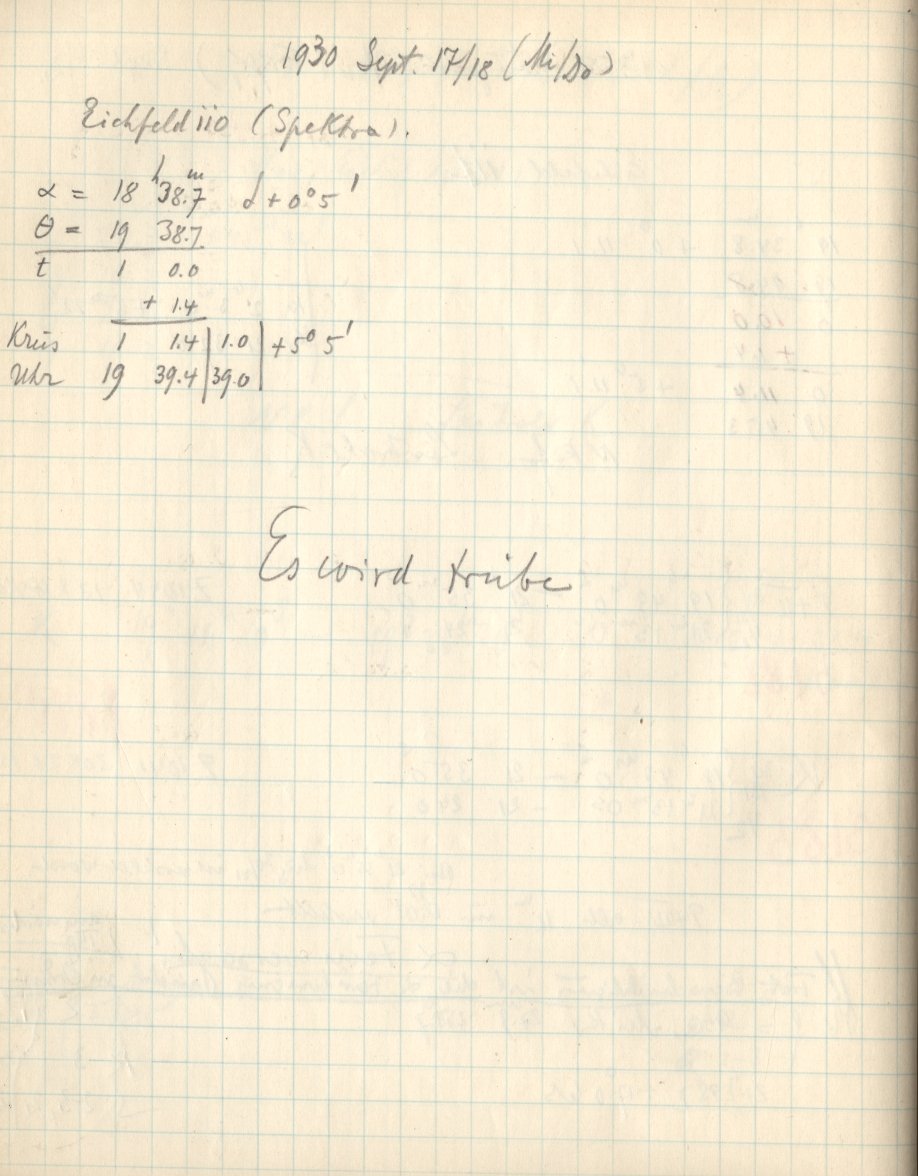 1930 Sept. 17/18 (Mi/Do)
Eichfeld 110 (Spektra).
α = 18ʰ 38.7ᵐ δ + 0° 5'
θ = 19 38.7
t 1 0.0
+ 1.4
Kreis 1 1.4 | 1.0 | + 5° 5'
Uhr 19 39.4 | 39.0 |
Es wird trübe